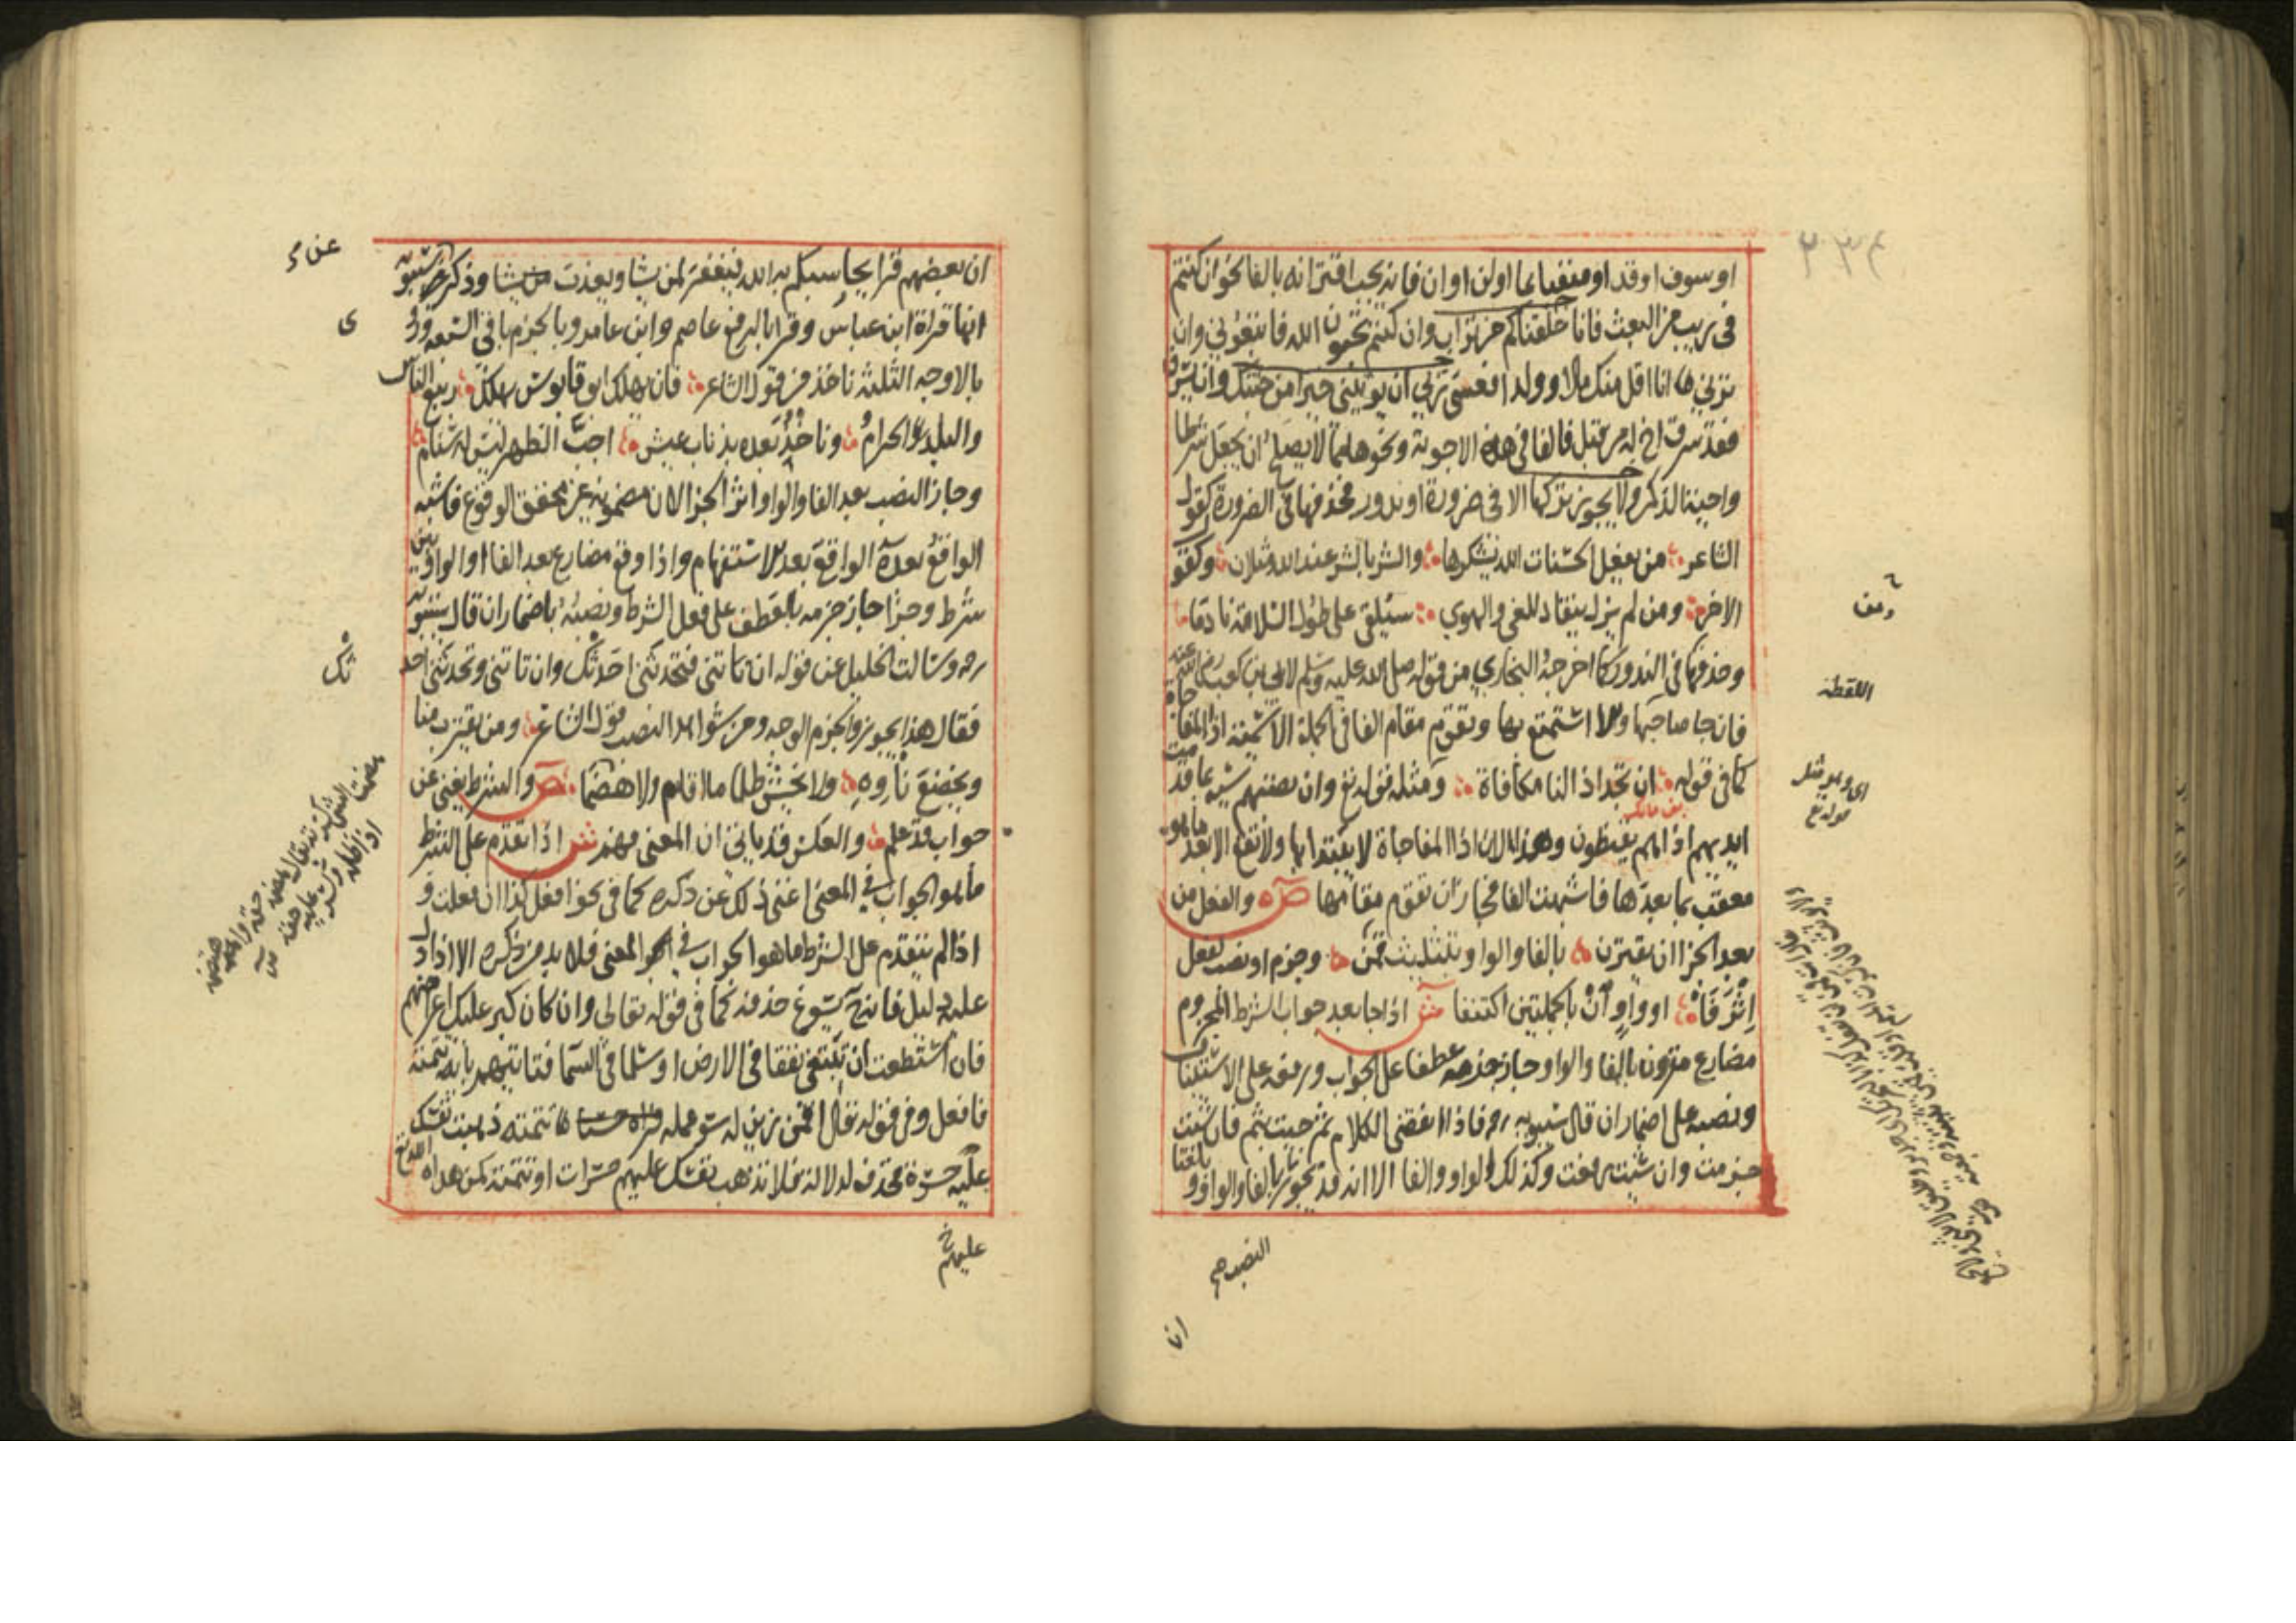 او سوف او قد او منفيا بما او لن او ان فانه يجب اقترانه بالفا نحو ان كنتم
في ريب من البعث فانا خلقناكم من تراب وان كنتم تحبون الله فاتبعوني وان
ترني انا اقل منك مالا وولدا فعسى ربي ان يوتيني خيرا من جنتك وان يسرق
فقد سرق اخ له من قبل فالفا في هذه الاجوبة ونحوها مما لا يصلح ان يجعل شرطا
واجبة الذكر ولا يجوز تركها الا في ضرورة او ندور فحذفها في الضرورة كقول
الشاعر من يفعل الحسنات الله يشكرها والشر بالشر عند الله مثلان وكقول
الاخر ومن لم يزل ينقاد للغي والهوى سيلقى على طول السلامة نادما
وحذفها في الندور كما اخرجه البخاري من قوله صلى الله عليه وسلم لابي بن كعب رضي الله عنه
فان جا صاحبها والا استمتع بها وتقوم مقام الفا في الجملة الاسمية اذا المفاجاة
كما في قوله ان تجد اذا لنا مكافاة ومثله قوله تع وان تصبهم سيئة بما قدمت
ايديهم اذا هم يقنطون وهذا لان اذا المفاجاة لا يبتدا بها ولا تقع الا بعد ما هو
معقب بما بعدها فاشبهت الفا فجاز ان تقوم مقامها ص والفعل من
بعد الجزا ان يقترن بالفا او الواو بتثليث قمن وجزم او نصب لفعل
اثر فا او واو ان بالجملتين اكتنفا ش اذا جا بعد جواب الشرط المجزوم
مضارع مقرون بالفا او الواو جاز جزمه عطفا على الجواب ورفعه على الاستئناف
ونصبه على اضمار ان قال سيبويه ره فاذا انقضى الكلام ثم جئت بثم فان شئت
جزمت وان شئت رفعت وكذلك الواو والفا الا انه قد يجوز النصب بالفا والواو وبلغنا
ومن
اللقطة
اي وهو مثل
قوله تع
النصب صح
ان
ان بعضهم قرا يحاسبكم به الله فيغفر لمن يشا ويعذب من يشا وذكر غير سيبويه
انها قراة ابن عباس وقرا بالرفع عاصم وابن عامر وبالجزم باقي السبعة وروي
بالاوجه الثلثة ناخذ من قول الشاعر فان يهلك ابو قابوس يهلك ربيع الناس
والبلد الحرام وناخذ بعده بذناب عيش اجب الظهر ليس له سنام
وجاز النصب بعد الفا والواو اثر الجزا لان مضمونه غير محقق الوقوع فاشبه
الواقع بعده الواقع بعد الاستفهام واذا وقع مضارع بعد الفا او الواو بين
شرط وجزا جاز جزمه بالعطف على فعل الشرط ونصبه باضمار ان قال سيبويه
ره وسالت الخليل عن قوله ان تاتني فتحدثني احدثك وان تاتني وتحدثني احد
فقال هذا يجوز والجزم الوجه ومن شواهد النصب قول الشاعر ومن يقترب منا
ويخضع نؤوه ولا يخش ظلما ما اقام ولا هضما ص والشرط يغني عن
جواب قد علم والعكس قد ياتي ان المعنى فهم ش اذا تقدم على الشرط
ما هو الجواب في المعنى اغنى ذلك عن ذكره كما في نحو افعل كذا ان فعلت و
اذا لم يتقدم على الشرط ما هو الجواب في المعنى فلا بد من ذكره الا اذا دل
عليه دليل فانه يسوغ حذفه كما في قوله تعالى وان كان كبر عليك اعراضهم
فان استطعت ان تبتغي نفقا في الارض او سلما في السما فتاتيهم باية تتمته
فافعل وفي قوله تعالى افمن زين له سوء عمله فراه حسنا تتمته ذهبت نفسك
عليه حسرة فحذف لدلالة فلا تذهب نفسك عليهم حسرات او تتمته كمن هداه الله تع
عن
ى
ثك
عليهم